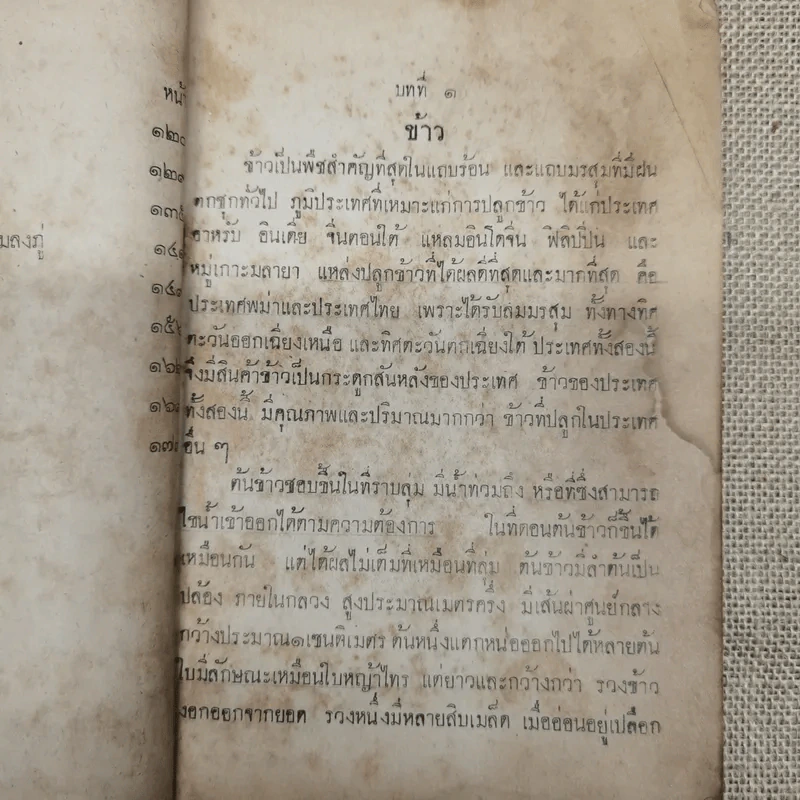 หน้
๑๒๐
๑๒๑
๑๓
๑๔
๑๔
๑๕
๑๖
๑๖
๑๗
มลงภู่
บทที่ ๑
ข้าว
ข้าวเป็นพืชสำคัญที่สุดในแถบร้อน และแถบมรสุมที่มีฝน
ตกชุกทั่วไป ภูมิประเทศที่เหมาะแก่การปลูกข้าว ได้แก่ประเทศ
อาหรับ อินเดีย จีนตอนใต้ แหลมอินโดจีน ฟิลิปปิน และ
หมู่เกาะมลายา แหล่งปลูกข้าวที่ได้ผลดีที่สุดและมากที่สุด คือ
ประเทศพม่าและประเทศไทย เพราะได้รับลมมรสุม ทั้งทางทิศ
ตะวันออกเฉียงเหนือ และทิศตะวันตกเฉียงใต้ ประเทศทั้งสองนี้
จึงมีสินค้าข้าวเป็นกระดูกสันหลังของประเทศ ข้าวของประเทศ
ทั้งสองนี้ มีคุณภาพและปริมาณมากกว่า ข้าวที่ปลูกในประเทศ
อื่น ๆ
ต้นข้าวชอบขึ้นในที่ราบลุ่ม มีน้ำท่วมถึง หรือที่ซึ่งสามารถ
ไขน้ำเข้าออกได้ตามความต้องการ ในที่ดอนต้นข้าวก็ขึ้นได้
เหมือนกัน แต่ได้ผลไม่เต็มที่เหมือนที่ลุ่ม ต้นข้าวมีลำต้นเป็น
ปล้อง ภายในกลวง สูงประมาณเมตรครึ่ง มีเส้นผ่าศูนย์กลาง
กว้างประมาณ๑เซนติเมตร ต้นหนึ่งแตกหน่อออกไปได้หลายต้น
ใบมีลักษณะเหมือนใบหญ้าไทร แต่ยาวและกว้างกว่า รวงข้าว
งอกออกจากยอด รวงหนึ่งมีหลายสิบเมล็ด เมื่ออ่อนอยู่เปลือก